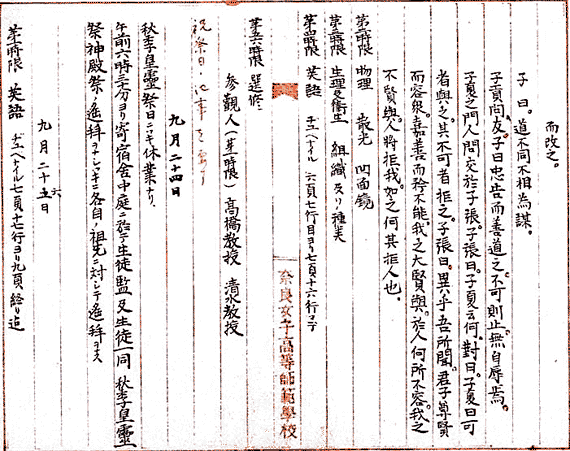 而改之。
子曰。道不同不相為謀。
子貢問友。子曰忠告而善道之。不可則止。無自辱焉。
子夏之門人問交於子張。子張曰。子夏云何。對曰。子夏曰可
者與之。其不可者拒之。子張曰。異乎吾所聞。君子尊賢
而容衆。嘉善而矜不能。我之大賢與。於人何所不容。我之
不賢與。人將拒我。如之何其拒人也。
第二時限 物理 散光 凹面鏡
第三時限 生理及衛生 組織及ソノ種類
第四時限 英語 チユヘナイル 六頁七行目ヨリ七頁十六行マデ
奈良女子高等師範學校
第五六時限 選修
参観人(第一時限) 高橋教授 清水教授
祝祭日・記事を写す
九月二十四日
秋季皇靈祭日ニツキ休業ナリ。
午前六時三十分ヨリ寄宿舎中庭ニ於テ生徒監及生徒一同 秋季皇靈
祭神殿祭ノ遙拜ヲナシツギニ各自ノ祖先ニ対シテ遙拜ヲス
九月二十五六日
第一時限 英語 チユヘナイル七頁十七行ヨリ九頁終り迄